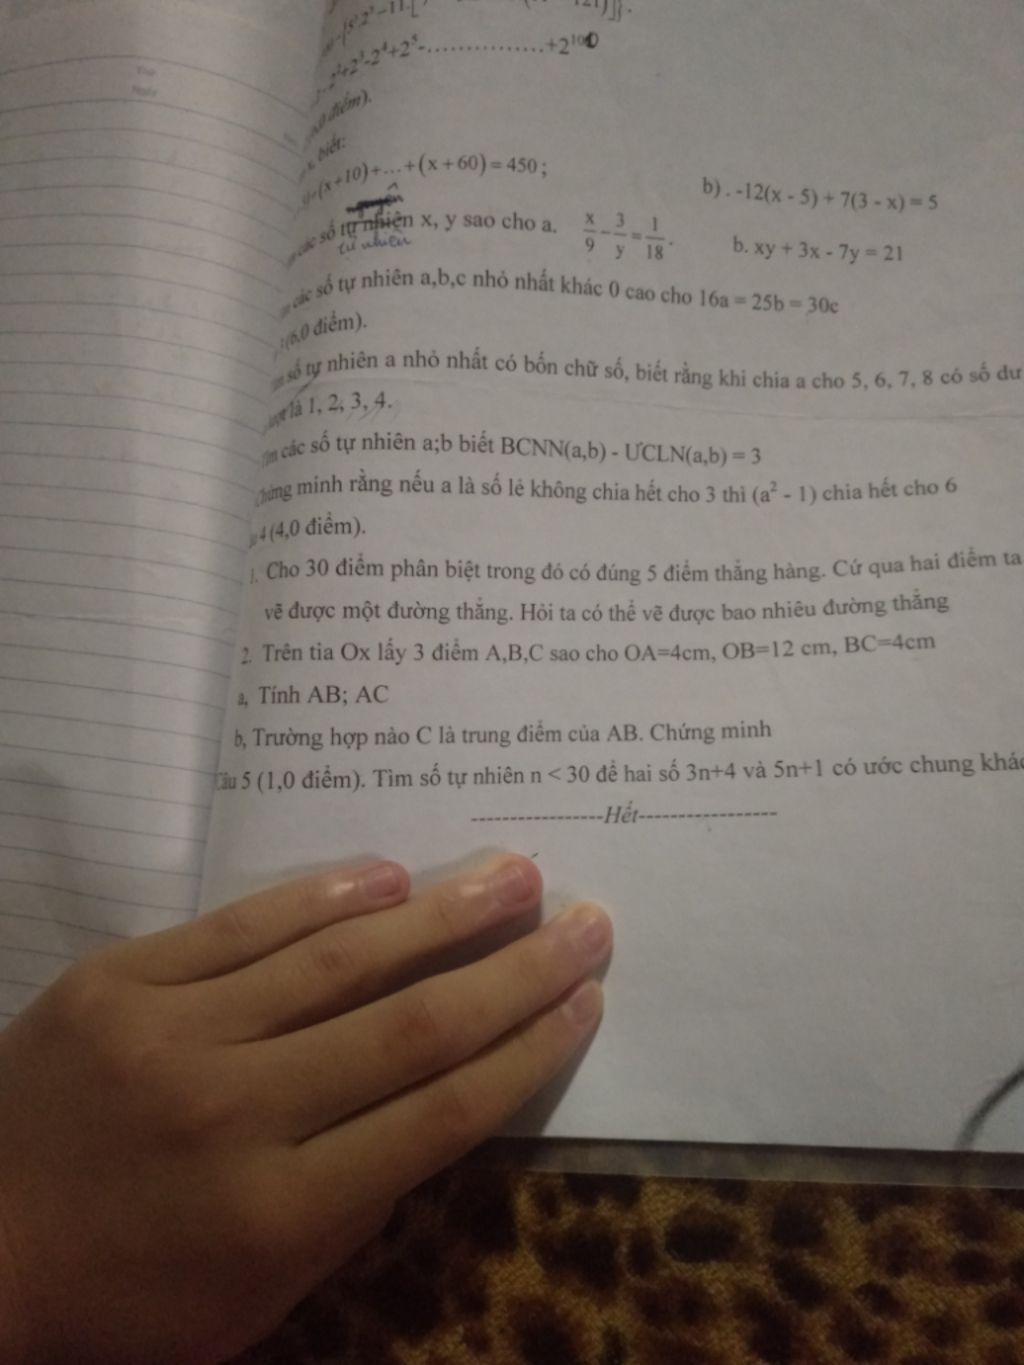 +2¹⁰⁰
điểm).
biết:
(x+10)+...+(x+60) = 450 ;
b) . -12(x - 5) + 7(3 - x) = 5
các số tự nhiên x, y sao cho a. x/9 - 3/y = 1/18 .
b. xy + 3x - 7y = 21
tự nhiên
các số tự nhiên a,b,c nhỏ nhất khác 0 cao cho 16a = 25b = 30c
(6,0 điểm).
số tự nhiên a nhỏ nhất có bốn chữ số, biết rằng khi chia a cho 5, 6, 7, 8 có số dư
là 1, 2, 3, 4.
Tìm các số tự nhiên a;b biết BCNN(a,b) - ƯCLN(a,b) = 3
Chứng minh rằng nếu a là số lẻ không chia hết cho 3 thì (a² - 1) chia hết cho 6
4 (4,0 điểm).
1. Cho 30 điểm phân biệt trong đó có đúng 5 điểm thẳng hàng. Cứ qua hai điểm ta
vẽ được một đường thẳng. Hỏi ta có thể vẽ được bao nhiêu đường thẳng
2. Trên tia Ox lấy 3 điểm A,B,C sao cho OA=4cm, OB=12 cm, BC=4cm
a, Tính AB; AC
b, Trường hợp nào C là trung điểm của AB. Chứng minh
Câu 5 (1,0 điểm). Tìm số tự nhiên n < 30 để hai số 3n+4 và 5n+1 có ước chung khác
-----------------Hết-----------------